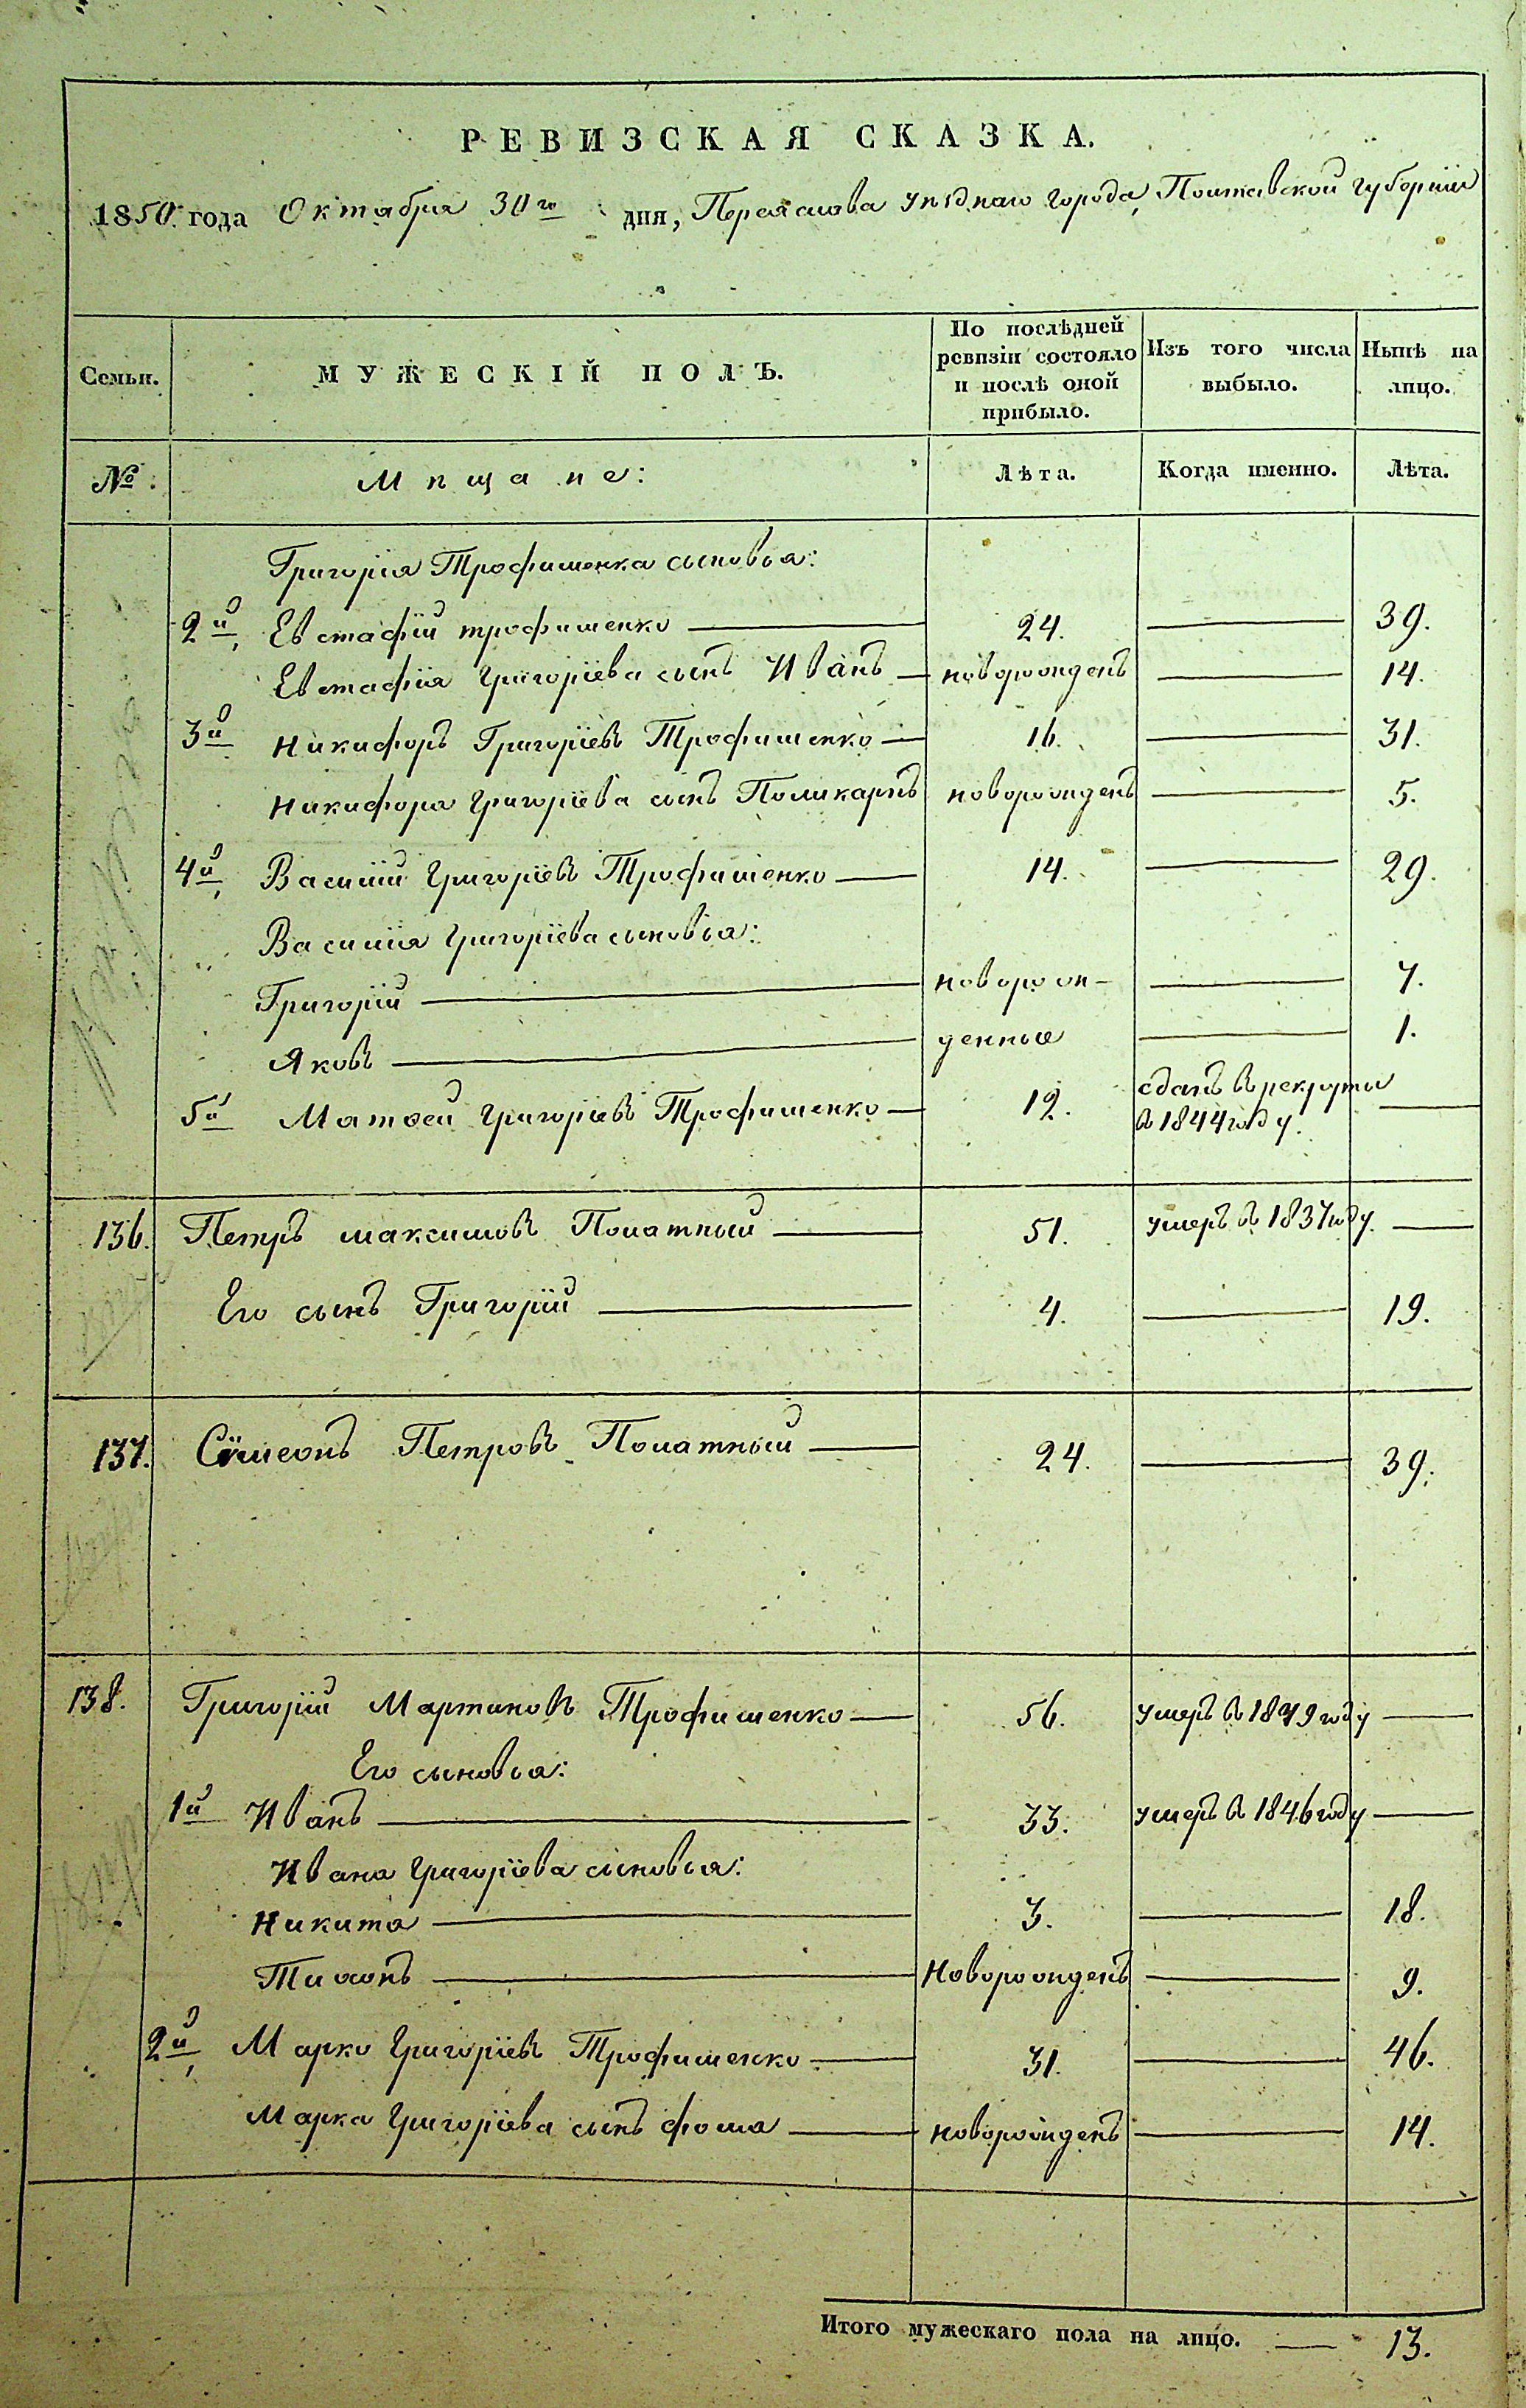 РЕВИЗСКАЯ СКАЗКА.
1850 года Октября 30го дня, Переяслова уѣзднаго города, Полтавской губерніи
Семьи.
МУЖЕСКІЙ ПОЛЪ.
По послѣдней ревизіи состояло и послѣ оной прибыло.
Изъ того числа выбыло.
Нынѣ на лицо.
№
Мѣщане:
Лѣта.
Когда именно.
Лѣта.
Григорія Трофименка сыновья:
2й Евстафій трофименко — 24. — 39.
Евстафія Григоріева сынъ Иванъ — новорожденъ — 14.
3й Никифоръ Григоріевъ Трофименко — 16. — 31.
Никифора Григоріева сынъ Поликарпъ новорожденъ — 5.
4й Василій Григоріевъ Трофименко — 14. — 29.
Василія Григоріева сыновья:
Григорій — новорож- — 7.
Яковъ — денные — 1.
5й Матвей Григоріевъ Трофименко — 12. сданъ въ рекруты —
в 1844 году.
136. Петръ максимовъ Полатный — 51. умеръ в 1837 году. —
Его сынъ Григорій — 4. — 19.
137. Сѵмеонъ Петровъ Полатный — 24. — 39.
138. Григорій Мартиновъ Трофименко — 56. умеръ в 1849 году —
Его сыновья:
1й Иванъ — 33. умеръ в 1846 году —
Ивана Григоріева сыновья:
Никита — 3. — 18.
Тихонъ — Новорожденъ — 9.
2й Марко Григоріевъ Трофименко — 31. — 46.
Марка Григоріева сынъ фома — новорожденъ — 14.
Итого мужескаго пола на лицо. — 13.